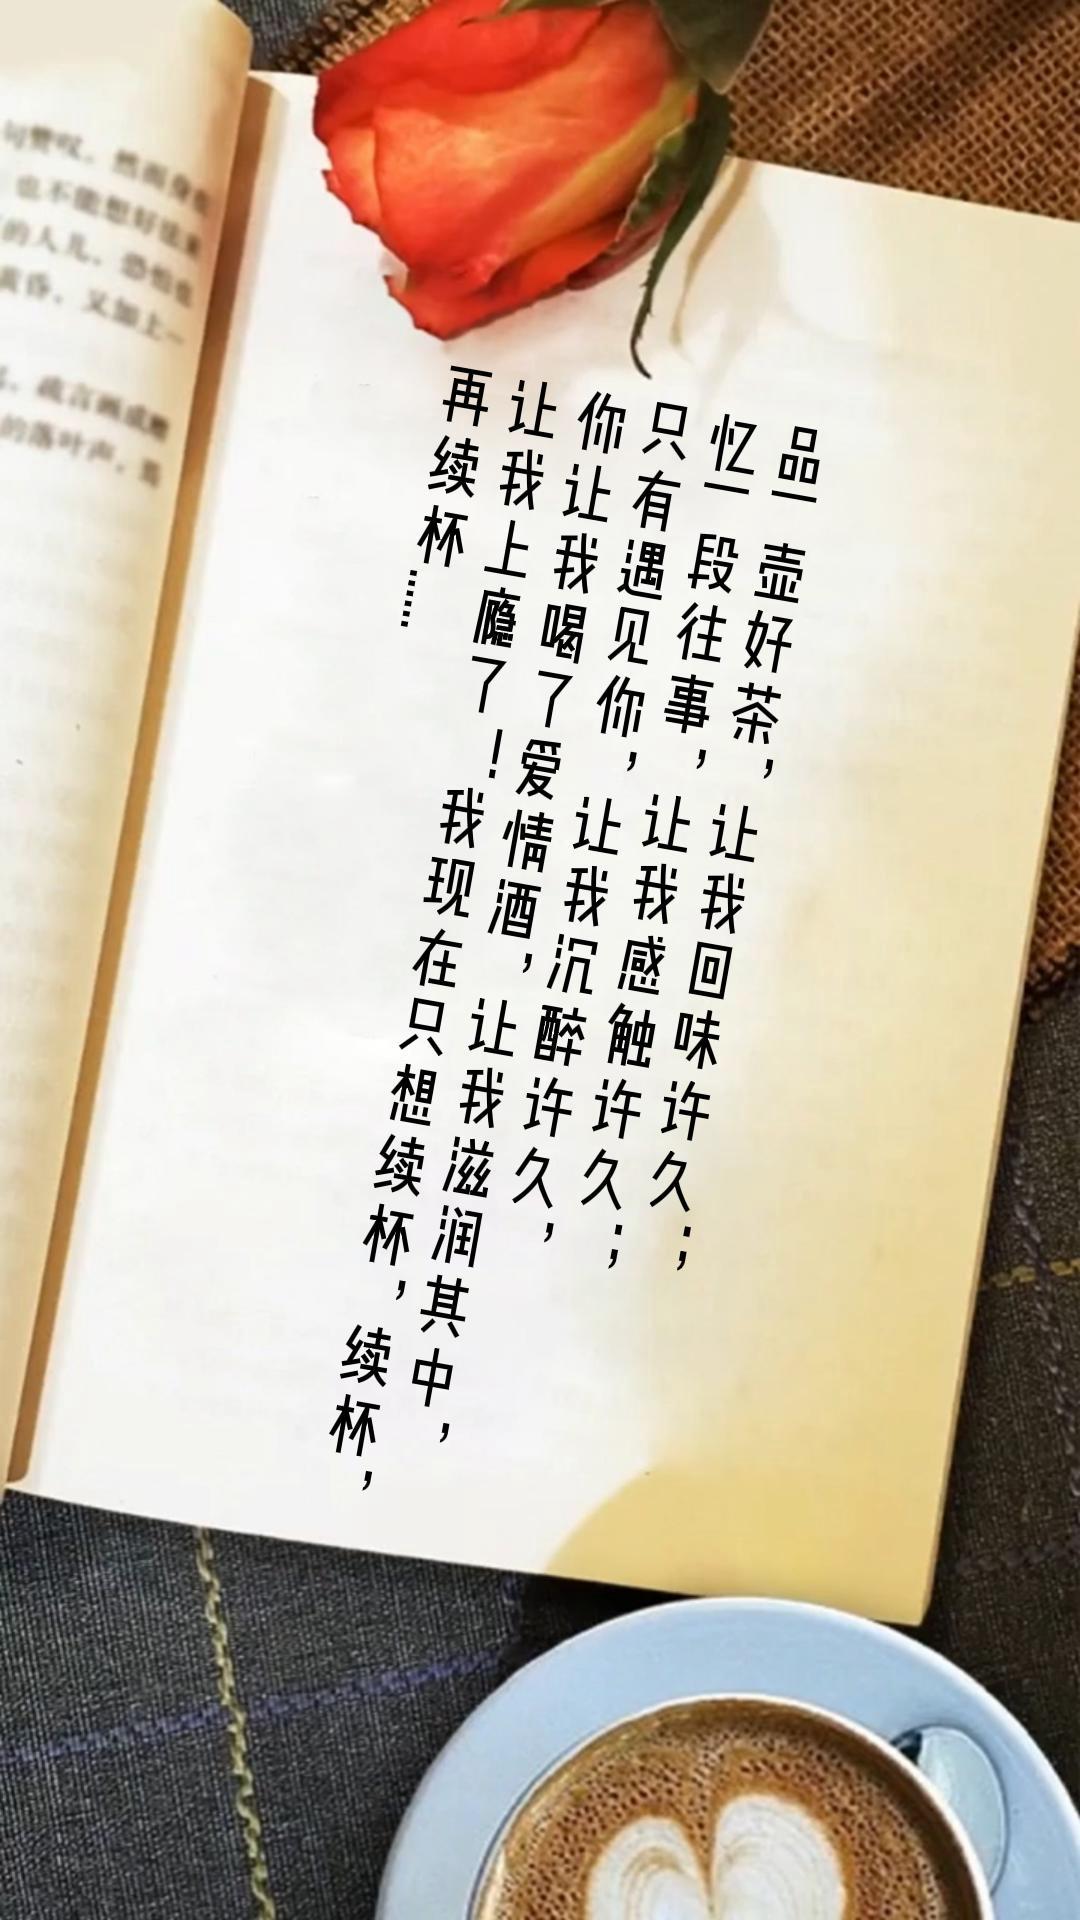 品一壶好茶，让我回味许久；
忆一段往事，让我感触许久；
只有遇见你，让我沉醉许久，
你让我喝了爱情酒，让我滋润其中，
让我上瘾了！我现在只想续杯，续杯，
再续杯……
句赞叹，然而身
也不能想好
的人儿，恐怕也
黄昏，又加上一
疏言画成
的落叶声，